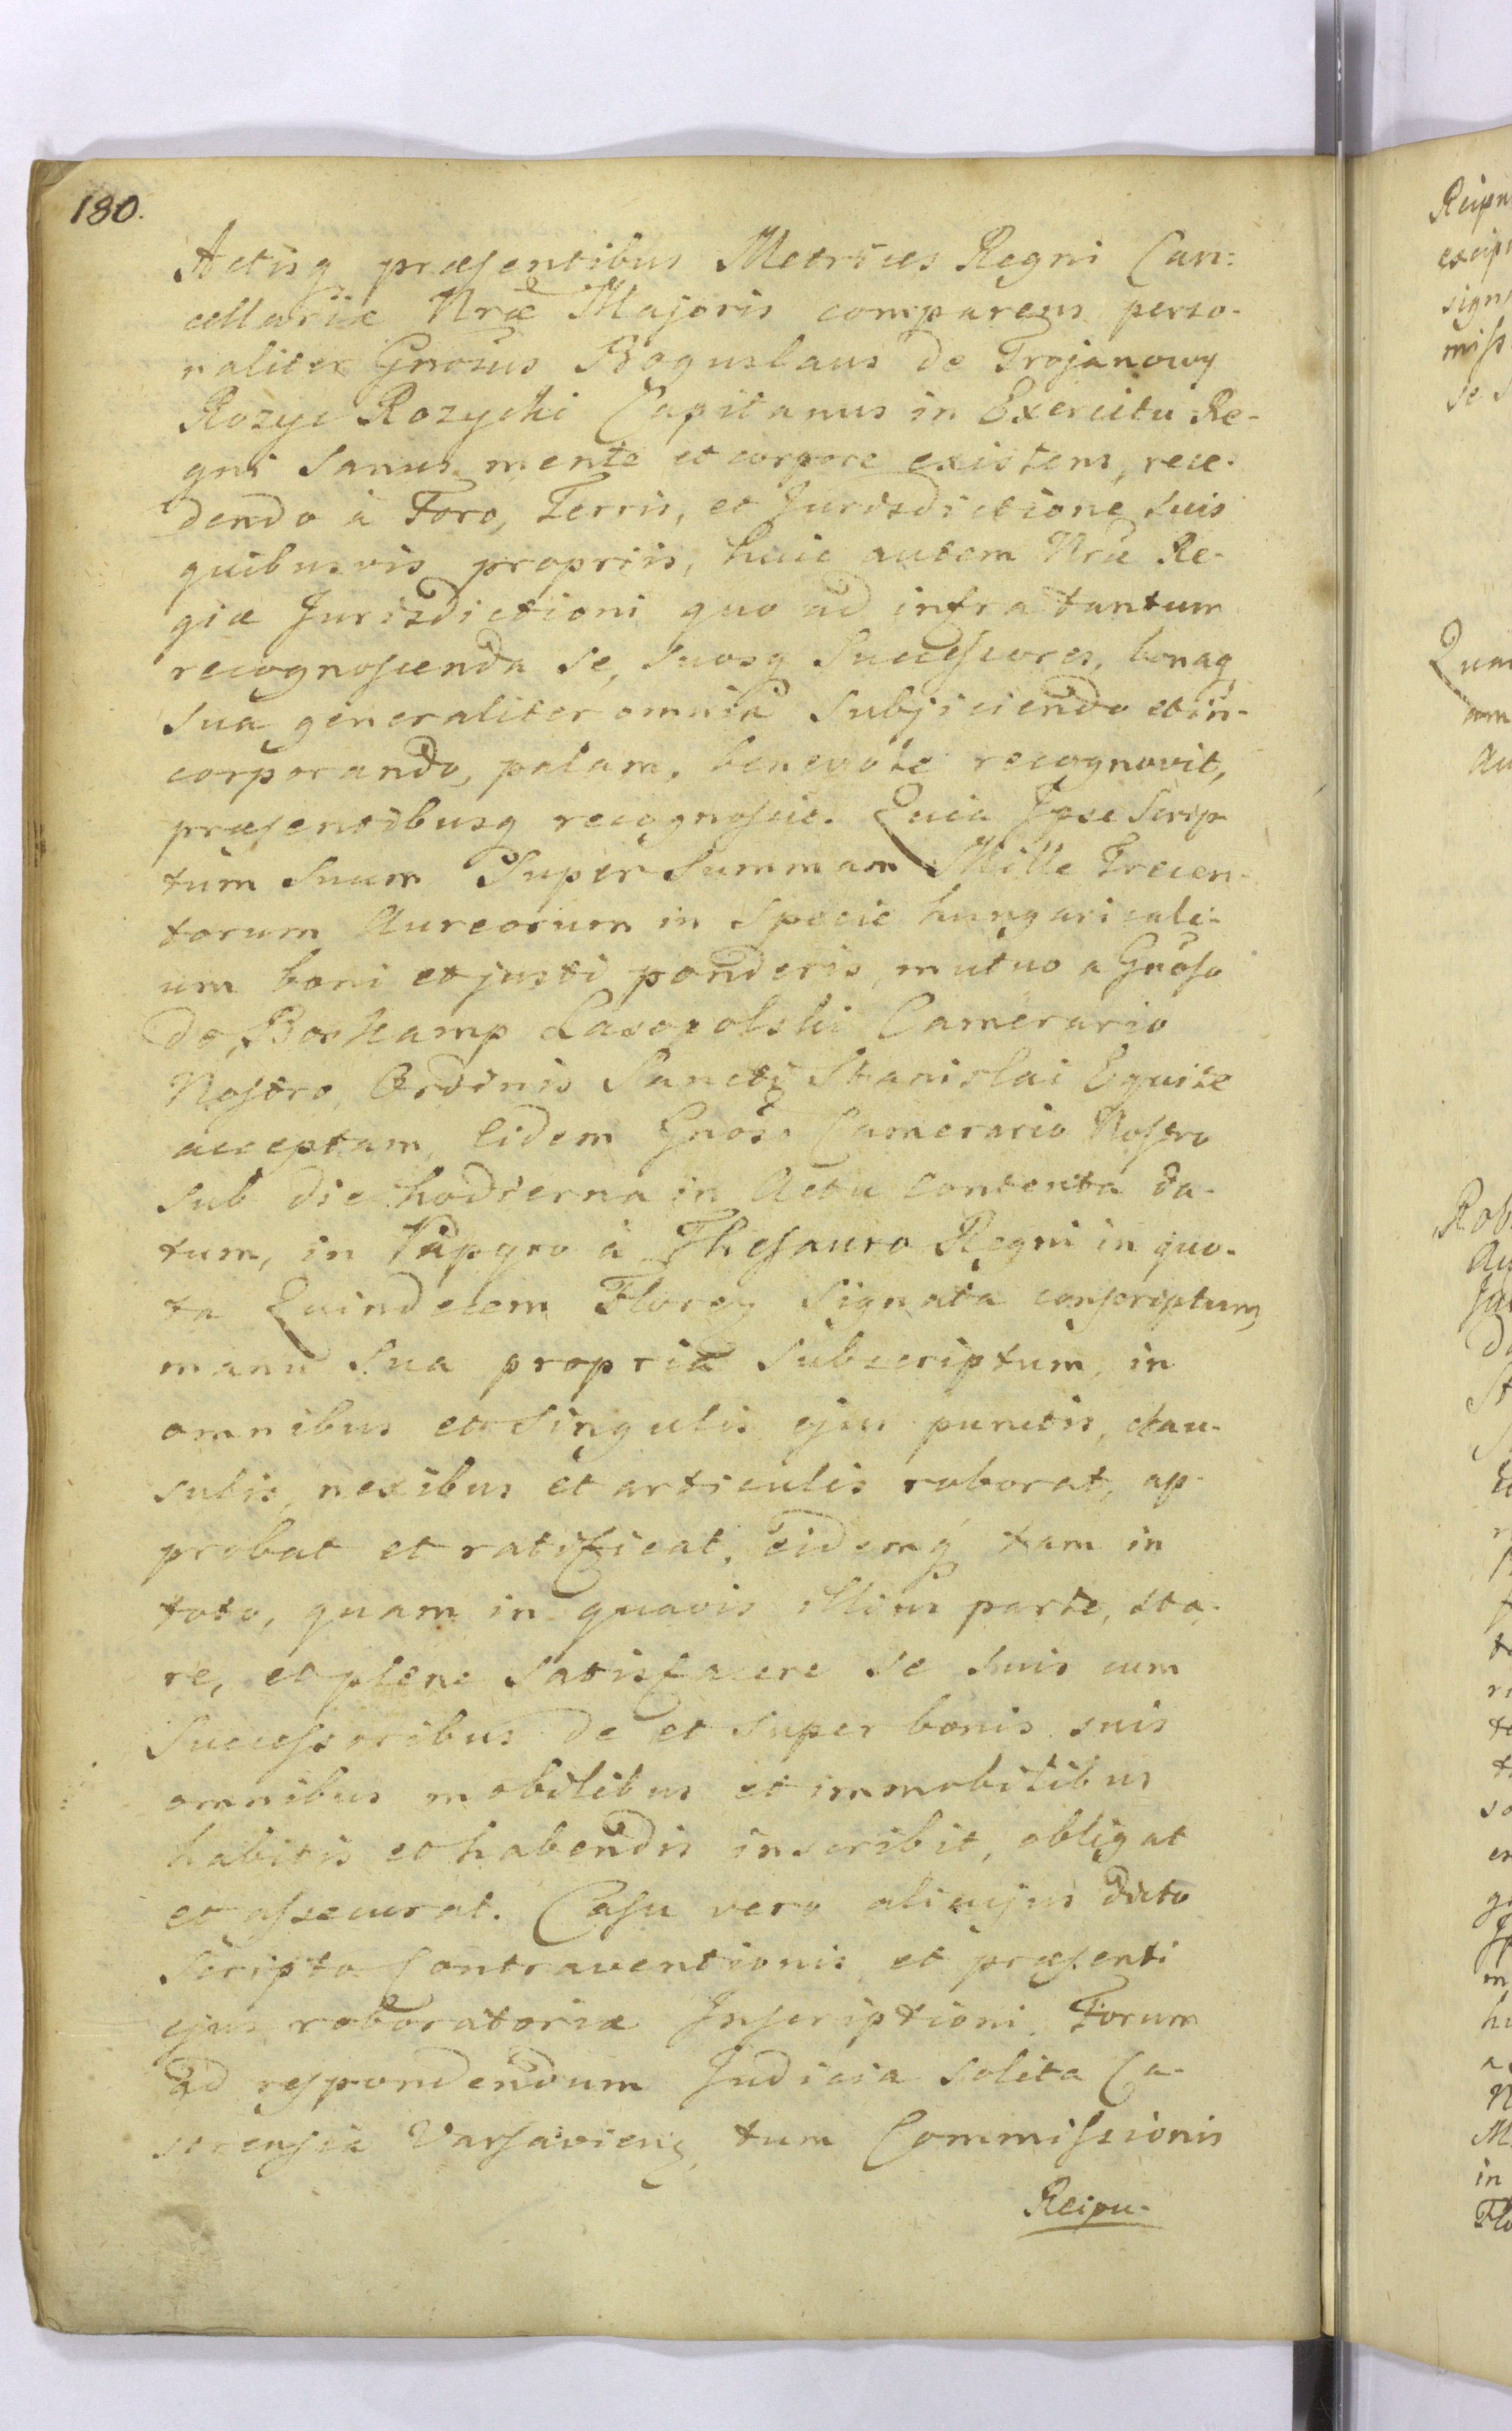 180.
Actisq præsentibus Metrices Regni Can:
cellariæ Nræ Majoris comparens perso-
naliter Gnosus Boguslaus de Trojanowy
Rozyc Rozycki Capitanus in Exercitu Re-
gni sanus mente et corpore existens, rece-
dendo à Foro, Terris, et Jurisdictione suis
quibusvis propriis, huic autem Nræ Re-
giæ Jurisdictioni quo ad infra tantum
recognoscenda se, suosq Successores, bonaq
sua generaliter omnia subjiciendo et in-
corporando, palam, benevole recognovit,
præsentibusq recognoscit. Quia Ipse Scrip
tum suum super summam Mille Trecen-
torum Aureorum in specie hungaricali-
um boni et justi ponderis, mutuo a Gnoso
de Boskamp Lasopolski Camerario
Nostro, Ordinis Sancti Stanislai Equite
acceptam, eidem Gnoso Camerario Nostro
sub die hodierna in Actu contenta da-
tum, in Papyro à Thesauro Regni in quo-
ta Quindecem Floren signata conscriptum,
manu sua propria subscriptum, in
omnibus et singulis ejus punctis, clau-
sulis, nexibus et articulis roborat, ap-
probat et ratificat, eidemq tam in
toto, quam in quavis illius parte, sta-
re, et plene satisfacere se suis cum
Successoribus de et super bonis suis
omnibus mobilibus et immobilibus
habitis et habendis inscribit, obligat
et assecurat. Casu vero alicujus dicto
Scripto Contraventionis et præsenti
ejus roboratoriæ Inscriptioni, Forum
ad respondendum Judicia solita Ca-
strensia Varsavien, tum Commissionis
Reipu-
Reipu
Quam
Rob
in
Flo